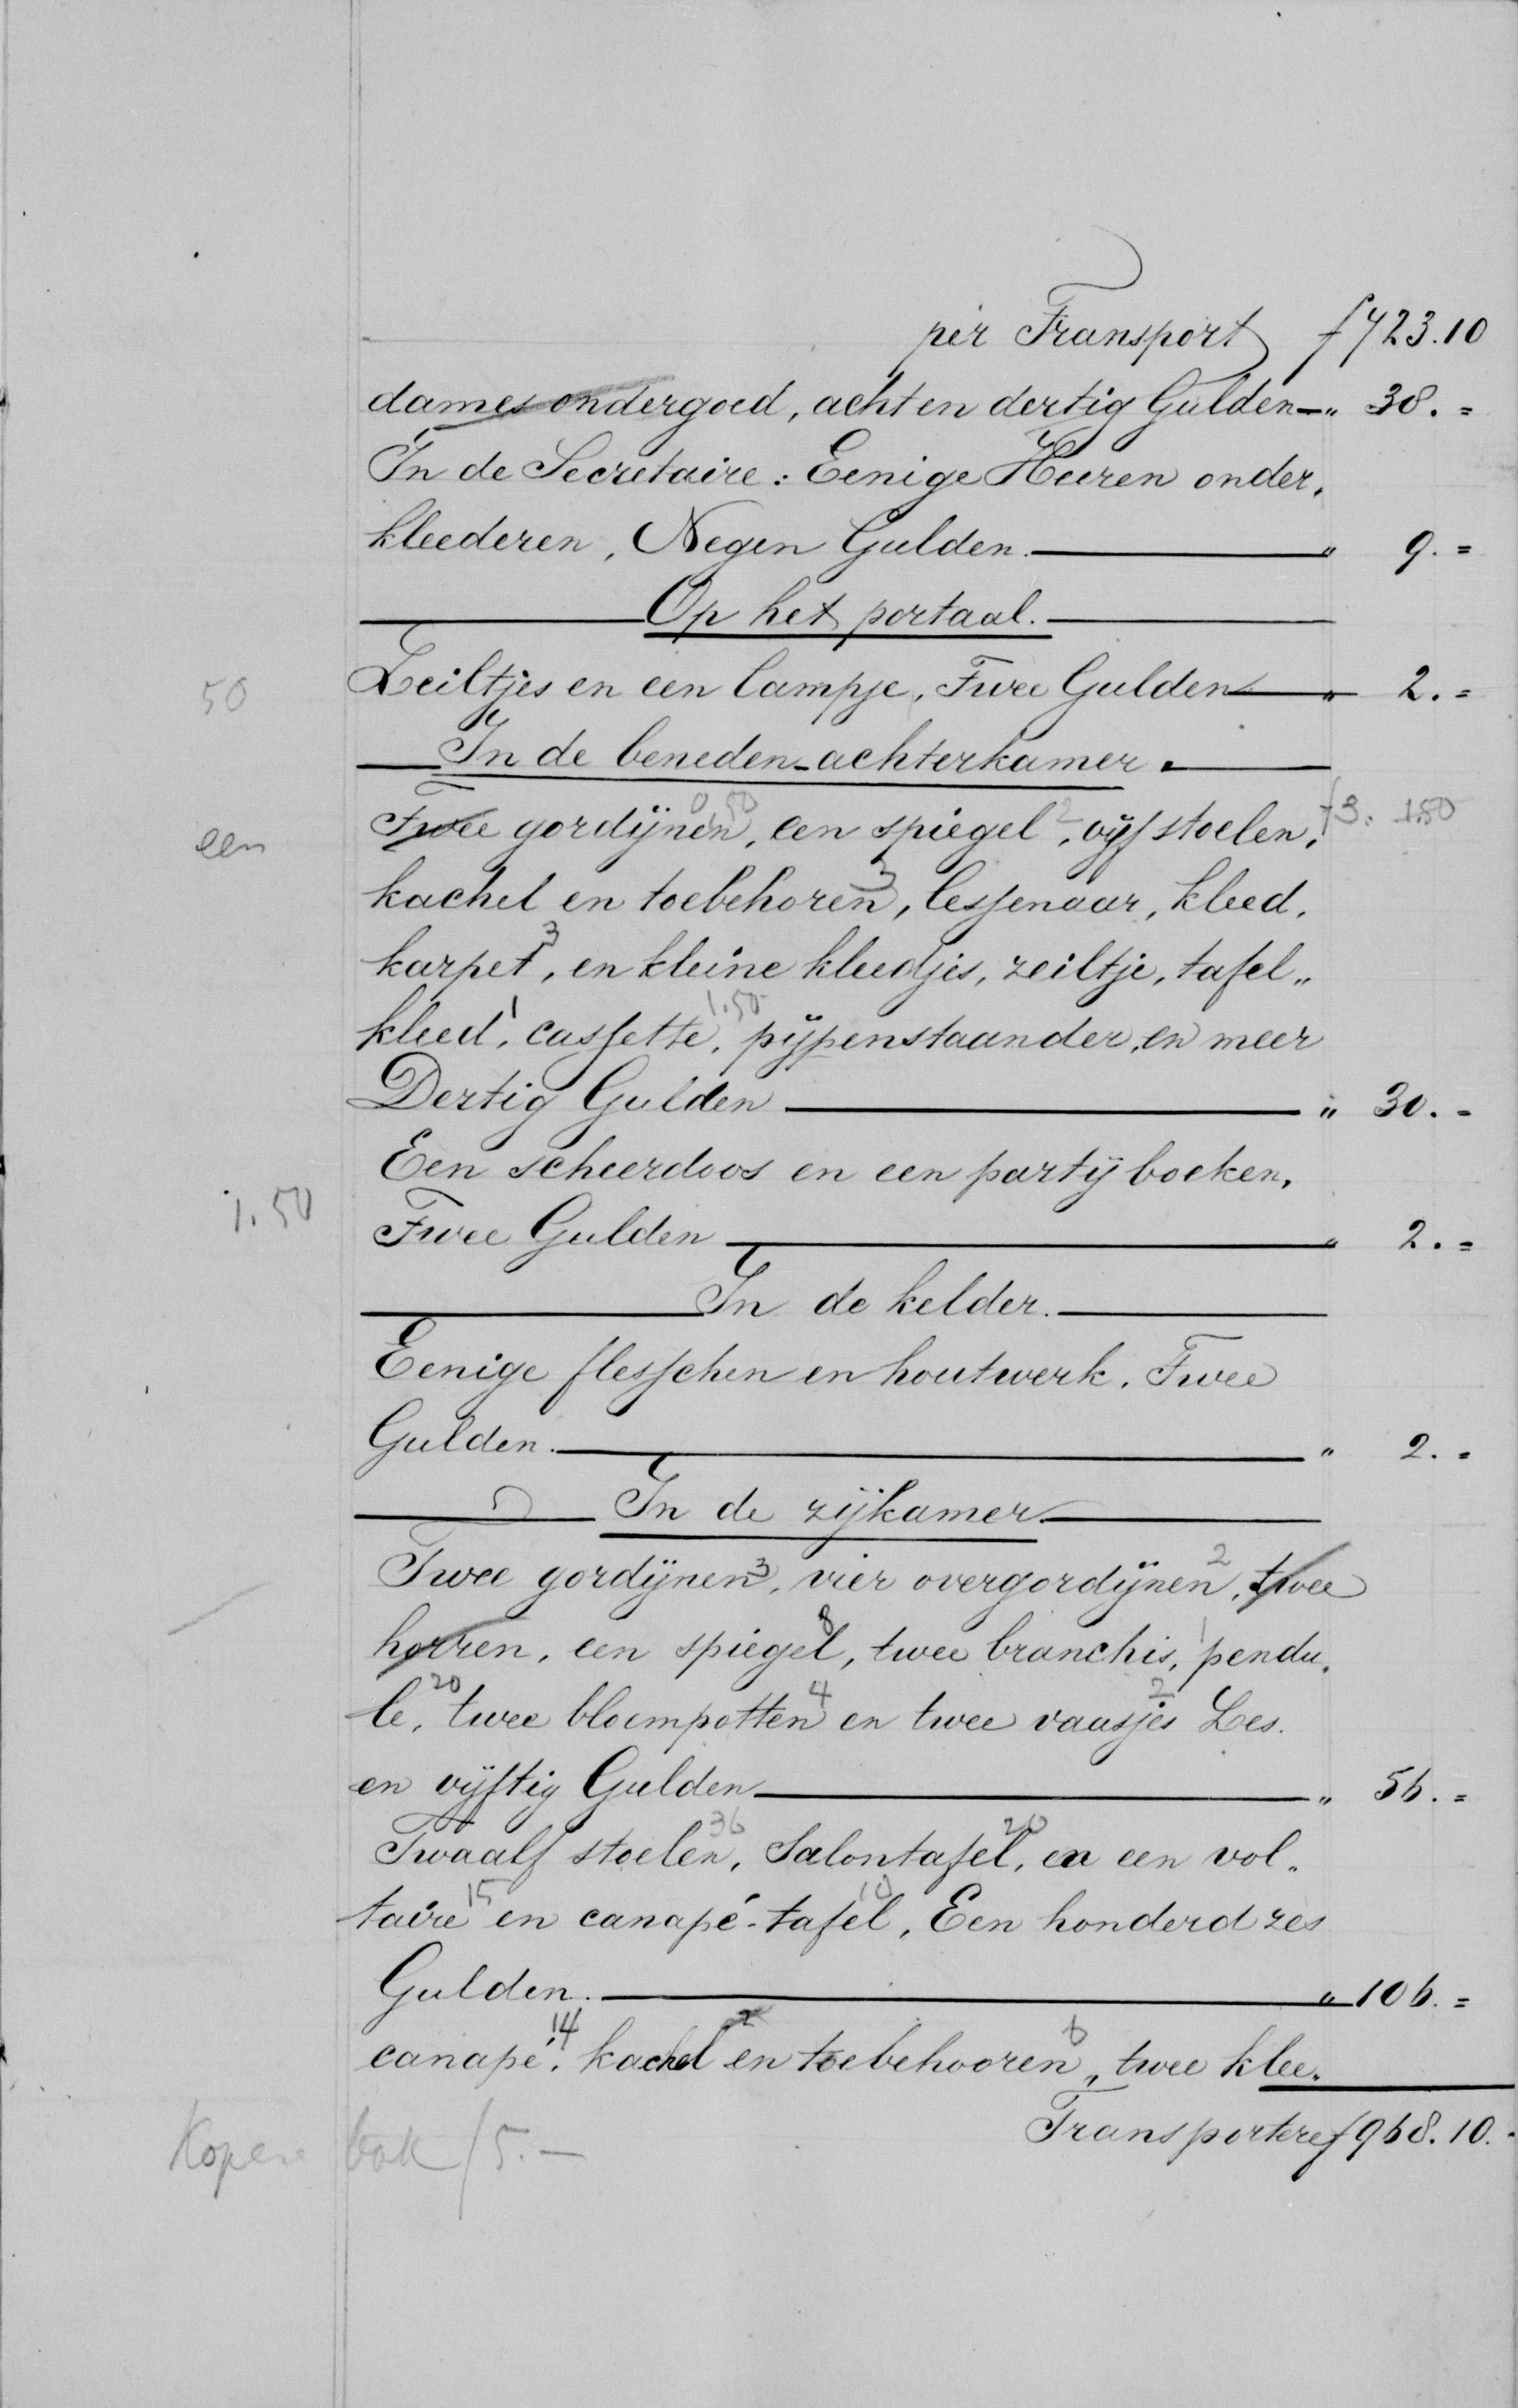 per Transport f 723.10
dames ondergoed, acht en dertig Gulden — " 38. =
In de Secretaire: Eenige Heeren onder,
kleederen, Negen Gulden. — " 9. =
Op het portaal.
50 Zeiltjes en een lampje, Twee Gulden — " 2. =
In de beneden-achterkamer.
0,50 2 f3. 1.50
een Twee gordijnen, een spiegel, vijf stoelen,
3
kachel en toebehoren, lessenaar, kleed,
3
karpet, en kleine kleedjes, zeiltje, tafel„
1 1.50
kleed, cassette, pijpenstaander, en meer
Dertig Gulden — " 30. -
Een scheerdoos en een partij boeken,
1.50 Twee Gulden — " 2. =
In de kelder.
Eenige flesschen en houtwerk. Twee
Gulden. — " 2. =
In de zijkamer
3 2
Twee gordijnen, vier overgordijnen, twee
8 1
horren, een spiegel, twee branchis, pendu,
20 4 2
le, twee bloempotten en twee vaasjes Zes.
en vijftig Gulden — " 56. =
36 20
Twaalf stoelen, Salontafel, en een vol„
15 10
taire en canapé-tafel, Een honderd zes
Gulden. — " 106. =
14 2 6
canapé, kachel en toebehooren, twee klee„
Transportere f 968.10.-
Kopere bak f 5.—